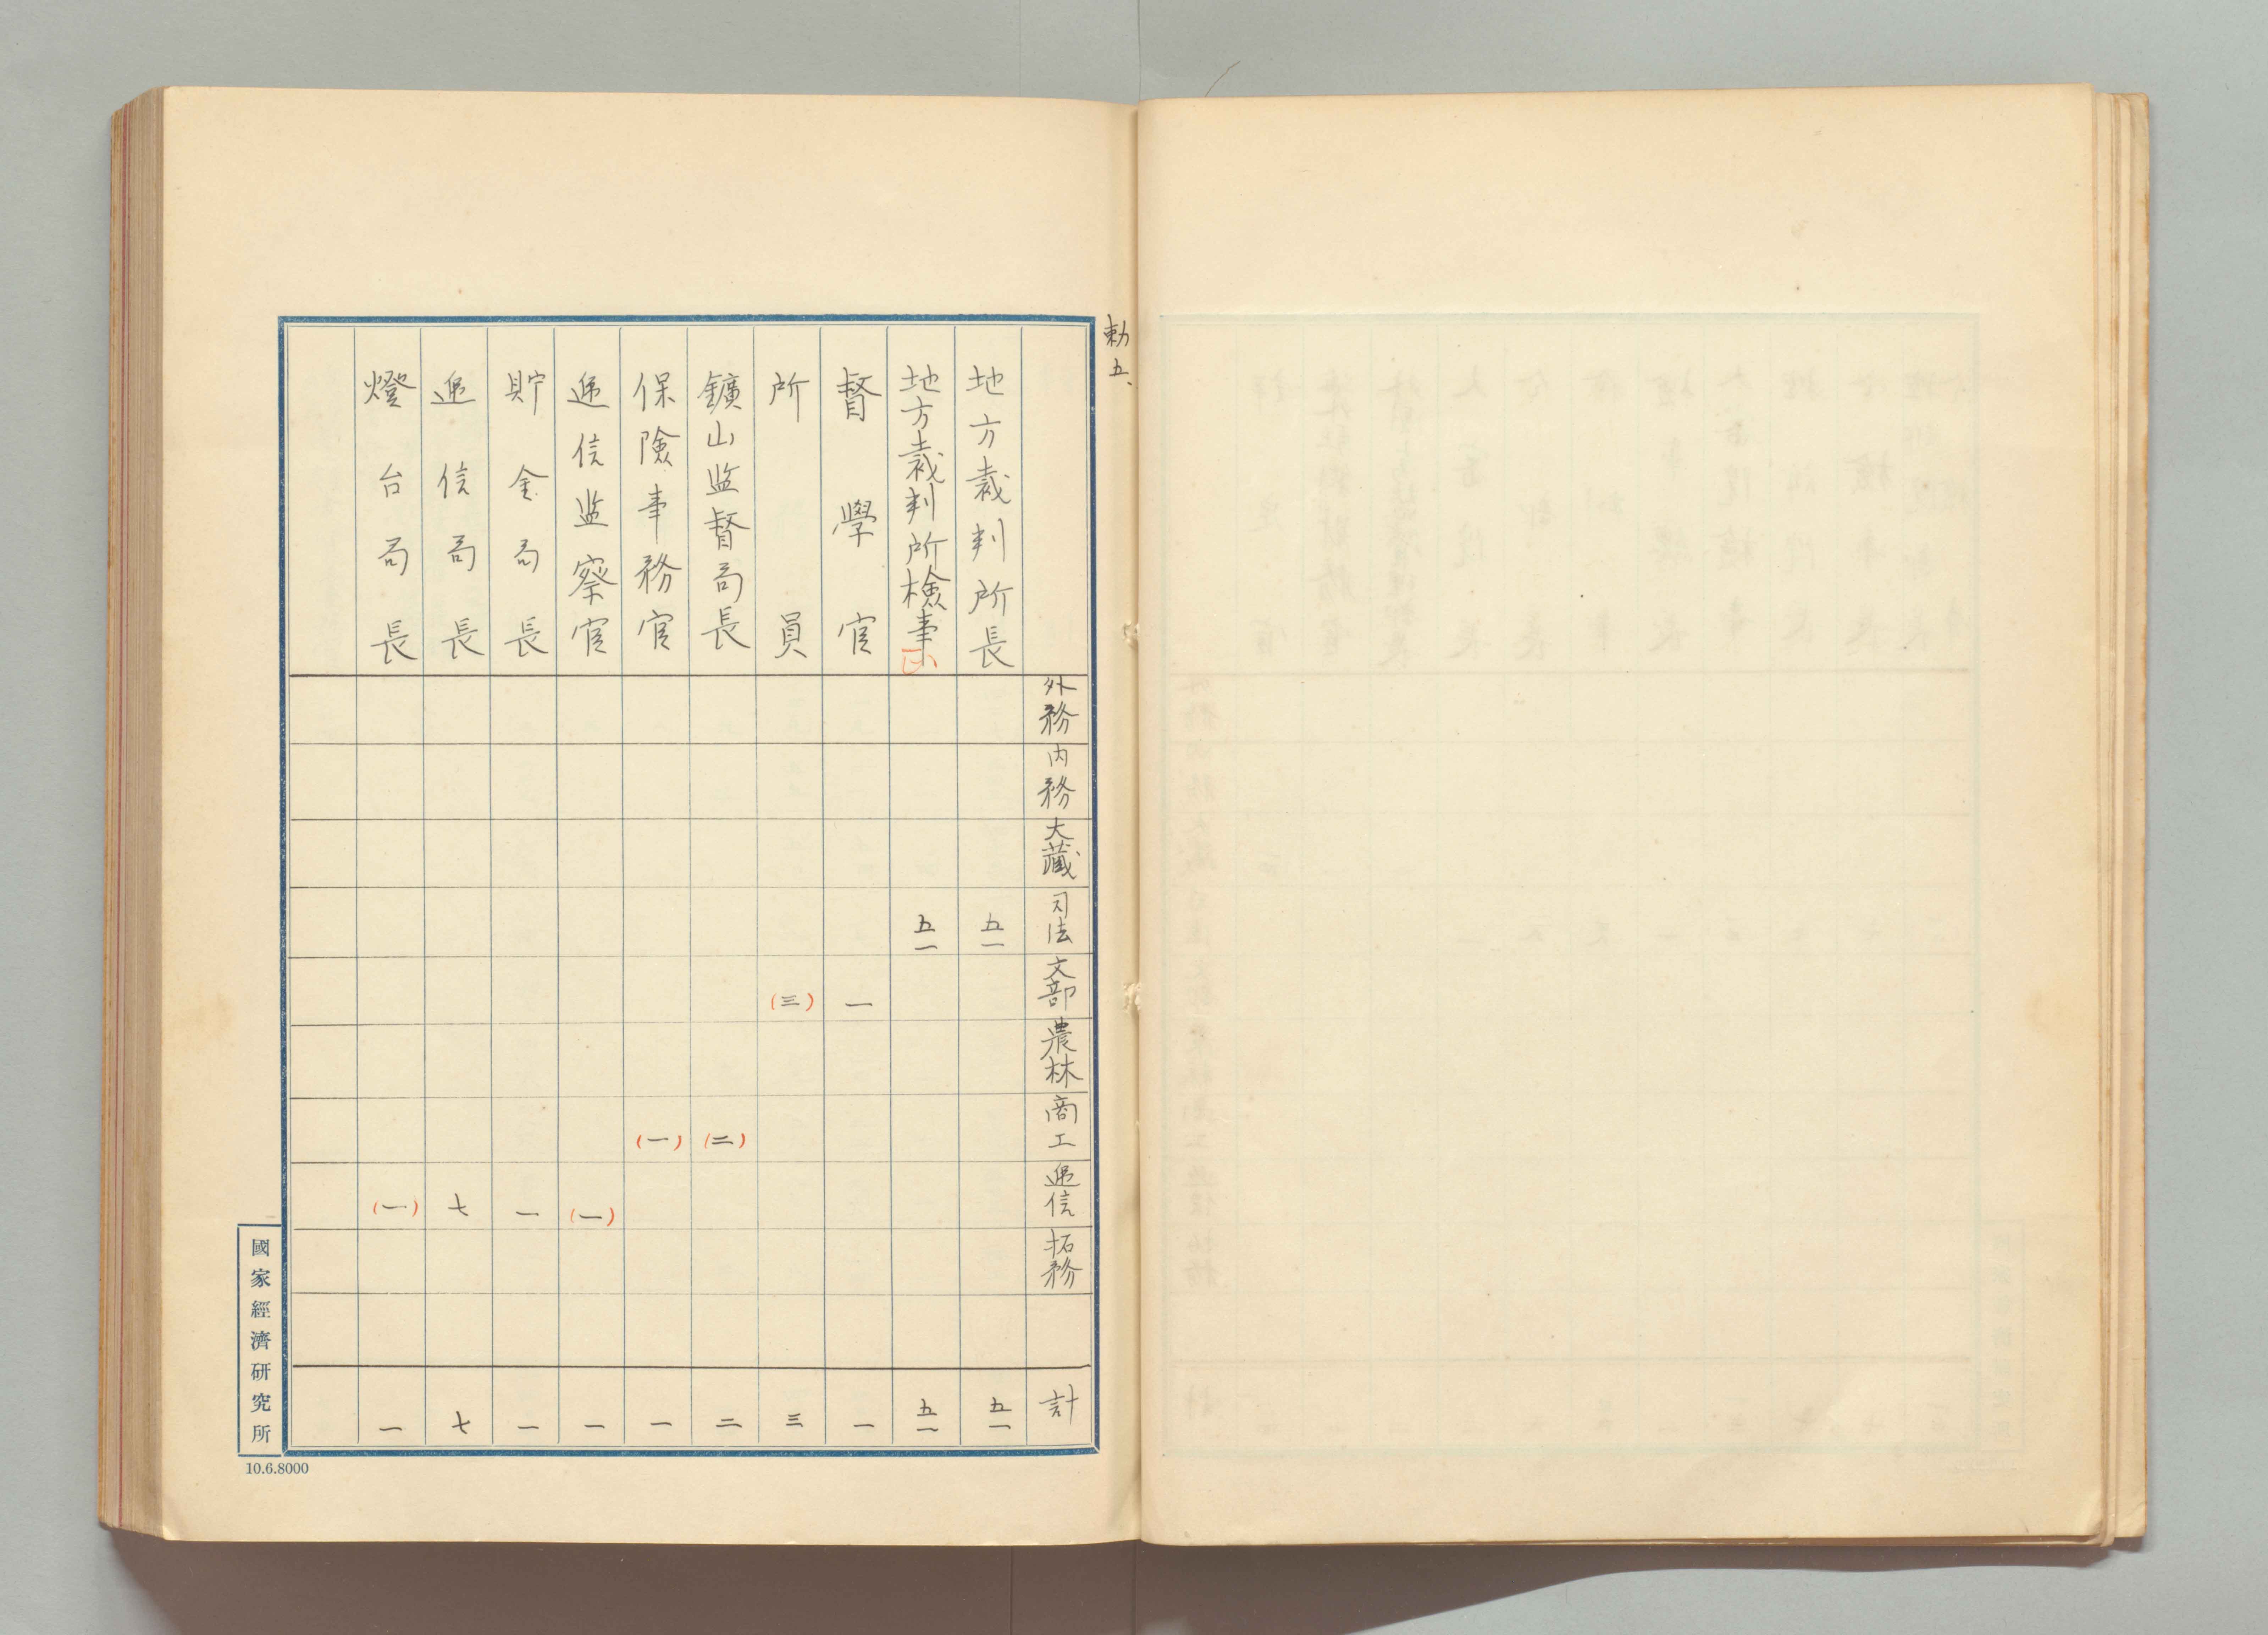 勅五、
外務 内務 大藏 司法 文部 農林 商工 逓信 拓務 計
地方裁判所長 五一 五一
地方裁判所検事正 五一 五一
督學官 一 一
所員 (三) 三
鑛山监督局長 (二) 二
保險事務官 (一) 一
逓信监察官 (一) 一
貯金局長 一 一
逓信局長 七 七
燈台局長 (一) 一
國家經濟研究所
10.6.8000